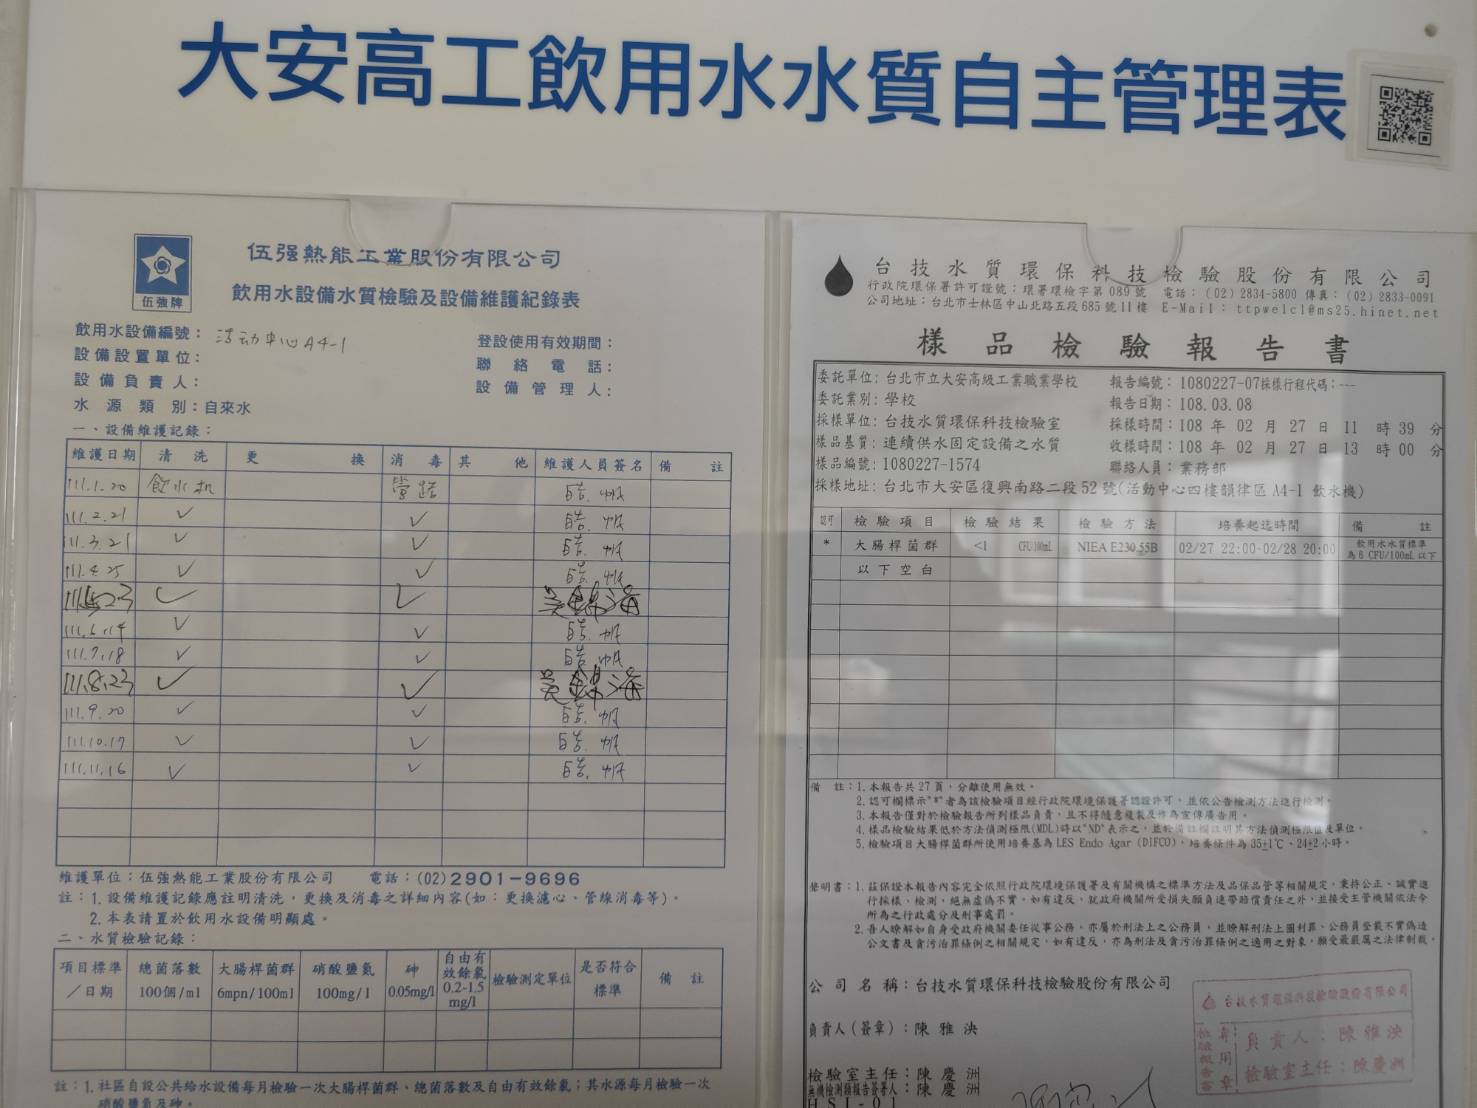 大安高工飲用水水質自主管理表
伍強牌
伍强熱能工業股份有限公司
飲用水設備水質檢驗及設備維護紀錄表
飲用水設備編號：活动中心A4-1
登設使用有效期間：
設備設置單位：
聯絡電話：
設備負責人：
設備管理人：
水源類別：自來水
一、設備維護記錄：
維護日期 清洗 更換 消毒 其他 維護人員簽名 備註
111.1.20 飲水机 管路
111.2.21 ✓ ✓
111.3.21 ✓ ✓
111.4.25 ✓ ✓
✓ ✓
111.6.14 ✓ ✓
111.7.18 ✓ ✓
111.8.23 ✓ ✓
111.9.20 ✓ ✓
111.10.17 ✓ ✓
111.11.16 ✓ ✓
維護單位：伍强熱能工業股份有限公司 電話：(02)2901-9696
註：1. 設備維護記錄應註明清洗，更換及消毒之詳細內容(如：更換濾心、管線消毒等)。
2. 本表請置於飲用水設備明顯處。
二、水質檢驗記錄：
項目標準／日期 總菌落數100個/ml 大腸桿菌群6mpn/100ml 硝酸鹽氮100mg/l 砷0.05mg/l 自由有效餘氯0.2-1.5mg/l 檢驗測定單位 是否符合標準 備註
註：1. 社區自設公共給水設備每月檢驗一次大腸桿菌群、總菌落數及自由有效餘氯；其水源每月檢驗一次
硝酸鹽氮及砷。
台技水質環保科技檢驗股份有限公司
行政院環保署許可證號：環署環檢字第089號 電話：(02) 2834-5800 傳真：(02) 2833-0091
公司地址：台北市士林區中山北路五段685號11樓 E-Mail：ttpwelcl@ms25.hinet.net
樣品檢驗報告書
委託單位：台北市立大安高級工業職業學校 報告編號：1080227-07採樣行程代碼：---
委託業別：學校 報告日期：108.03.08
採樣單位：台技水質環保科技檢驗室 採樣時間：108 年 02 月 27 日 11 時 39 分
樣品基質：連續供水固定設備之水質 收樣時間：108 年 02 月 27 日 13 時 00 分
樣品編號：1080227-1574 聯絡人員：業務部
採樣地址：台北市大安區復興南路二段52號(活動中心四樓韻律區A4-1 飲水機)
認可 檢驗項目 檢驗結果 檢驗方法 培養起迄時間 備註
* 大腸桿菌群 <1 CFU/100mL NIEA E230.55B 02/27 22:00-02/28 20:00 飲用水水質標準為6 CFU/100mL以下
以下空白
備註：1. 本報告共27頁，分離使用無效。
2. 認可欄標示"*"者為該檢驗項目經行政院環境保護署認證許可，並依公告檢測方法進行檢測。
3. 本報告僅對於檢驗報告所列樣品負責，且不得隨意複製及作為宣傳廣告用。
4. 樣品檢驗結果低於方法偵測極限(MDL)時以"ND"表示之，並於備註欄註明其方法偵測極限值及單位。
5. 檢驗項目大腸桿菌群所使用培養基為LES Endo Agar (DIFCO)，培養條件為35±1℃、24±2小時。
聲明書：1. 茲保證本報告內容完全依照行政院環境保護署及有關機構之標準方法及品保品管等相關規定，秉持公正、誠實進
行採樣、檢測，絕無虛偽不實。如有違反，就政府機關所受損失願負連帶賠償責任之外，並接受主管機關依法令
所為之行政處分及刑事處罰。
2. 吾人瞭解如自身受政府機關委任從事公務，亦屬於刑法上之公務員，並瞭解刑法上圖利罪、公務員登載不實偽造
公文書及貪污治罪條例之相關規定，如有違反，亦為刑法及貪污治罪條例之適用之對象，願受最嚴厲之法律制裁。
公司名稱：台技水質環保科技檢驗股份有限公司
負責人(簽章)：陳雅泱
檢驗室主任：陳慶洲
無機檢測類報告簽署人：陳慶洲
HSI-01
台技水質環保科技檢驗股份有限公司
負責人：陳雅泱
檢驗室主任：陳慶洲
檢驗報告專用章